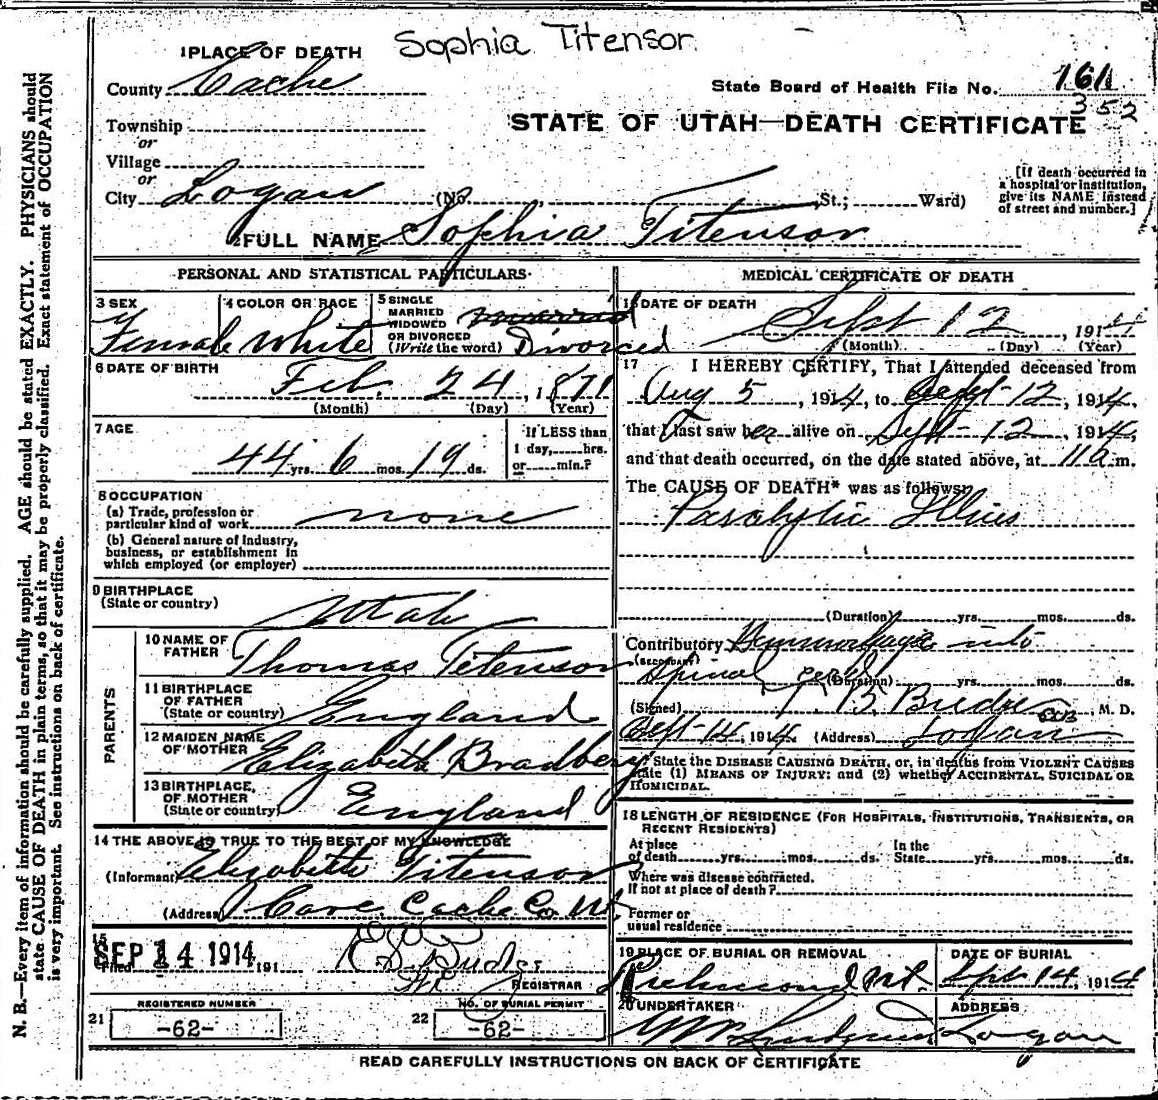 Sophia Titensor
1 PLACE OF DEATH
County Cache
State Board of Health File No. 161
352
Township
or
STATE OF UTAH—DEATH CERTIFICATE
Village
or
City Logan (No. , St.; Ward)
[If death occurred in
a hospital or institution,
give its NAME instead
of street and number.]
2 FULL NAME Sophia Titensor
PERSONAL AND STATISTICAL PARTICULARS
3 SEX
Female
4 COLOR OR RACE
White
5 SINGLE
MARRIED
WIDOWED
OR DIVORCED
(Write the word) Divorced
6 DATE OF BIRTH
Feb. 24, 1871
(Month) (Day) (Year)
7 AGE
44 yrs. 6 mos. 19 ds.
If LESS than
1 day, hrs.
or min.?
8 OCCUPATION
(a) Trade, profession or
particular kind of work none
(b) General nature of industry,
business, or establishment in
which employed (or employer)
9 BIRTHPLACE
(State or country) Utah
PARENTS
10 NAME OF
FATHER Thomas Titensor
11 BIRTHPLACE
OF FATHER
(State or country) England
12 MAIDEN NAME
OF MOTHER Elizabeth Bradbery
13 BIRTHPLACE,
OF MOTHER
(State or country) England
14 THE ABOVE IS TRUE TO THE BEST OF MY KNOWLEDGE
(Informant) Elizabeth Titensor
(Address) Cove, Cache Co. Ut.
15
Filed SEP 14 1914 191
REGISTRAR
REGISTERED NUMBER
21 -62-
NO. OF BURIAL PERMIT
22 -62-
MEDICAL CERTIFICATE OF DEATH
16 DATE OF DEATH
Sept 12, 1914
(Month) (Day) (Year)
17 I HEREBY CERTIFY, That I attended deceased from
Aug 5, 1914, to Sept 12, 1914,
that I last saw her alive on Sept 12, 1914,
and that death occurred, on the date stated above, at 11 a m.
The CAUSE OF DEATH* was as follows:
Paralytic Illius
(Duration) yrs. mos. ds.
Contributory Hemmorhage into
(SECONDARY)
spinal cord (Duration) yrs. mos. ds.
(Signed) , M. D.
Sept 14, 1914 (Address) Logan
* State the DISEASE CAUSING DEATH, or, in deaths from VIOLENT CAUSES
state (1) MEANS OF INJURY; and (2) whether ACCIDENTAL, SUICIDAL OR
HOMICIDAL.
18 LENGTH OF RESIDENCE (FOR HOSPITALS, INSTITUTIONS, TRANSIENTS, OR
RECENT RESIDENTS)
At place
of death yrs. mos. ds.
In the
State yrs. mos. ds.
Where was disease contracted.
If not at place of death?
Former or
usual residence
19 PLACE OF BURIAL OR REMOVAL
Richmond Ut.
DATE OF BURIAL
Sept 14, 1914
20 UNDERTAKER
ADDRESS
Logan
READ CAREFULLY INSTRUCTIONS ON BACK OF CERTIFICATE
N. B.—Every item of information should be carefully supplied. AGE should be stated EXACTLY. PHYSICIANS should
state CAUSE OF DEATH in plain terms, so that it may be properly classified. Exact statement of OCCUPATION
is very important. See instructions on back of certificate.